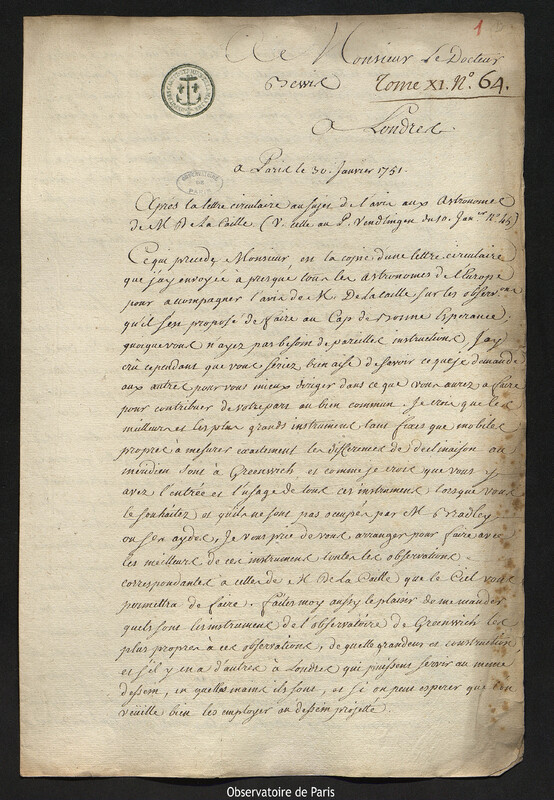 1
A Monsieur Le Docteur
Bewis Tome XI. N.º 64.
A Londres
OBSERVATOIRE DE PARIS
a Paris le 30. Janvier 1751.
Apres la lettre circulaire au sujet de l'avis aux Astronomes
de M. De la Caille (V. celle au P. Vendlingen du 10. Jan.er N.º 45)
Ce qui precede Monsieur est la copie d'une lettre circulaire
que j'ay envoyée a presque tous les Astronomes de l'Europe
pour accompagner l'avis de M. De la Caille sur les observ.ons
qu'il s'en propose de faire au Cap de Bonne Esperance;
quoique vous n'ayez pas besoin de pareilles instructions, J'ay
crû cependant que vous seriez bien aise de savoir ce que je demande
aux autres pour vous mieux diriger dans ce que vous aurez a faire
pour contribuer de votre part au bien commun. Je crois que les
meilleurs et les plus grands instrumens tant fixes que mobiles
propres à mesurer exactement les differences de declinaison au
meridien sont à Greenwich et comme je crois que vous y
avez l'entrée et l'usage de tous ces instrumens lorsque vous
le souhaitez et qu'ils ne sont pas occupés par M. Bradley
ou son ayde, Je vous prie de vous arranger pour faire avec
les meilleurs de ces instrumens toutes les observations
correspondantes a celles de M. De la Caille que le Ciel vous
permettra de faire. Faites moy aussy le plaisir de me mander
quels sont les instrumens de l'observatoire de Greenwich les
plus propres a ces observations, de quelle grandeur et construction,
et s'il y en a d'autres à Londres qui puissent servir au meme
dessein, en quelles mains ils sont, et si on peut esperer que l'on
veüille bien les employer au dessein projetté.
Observatoire de Paris